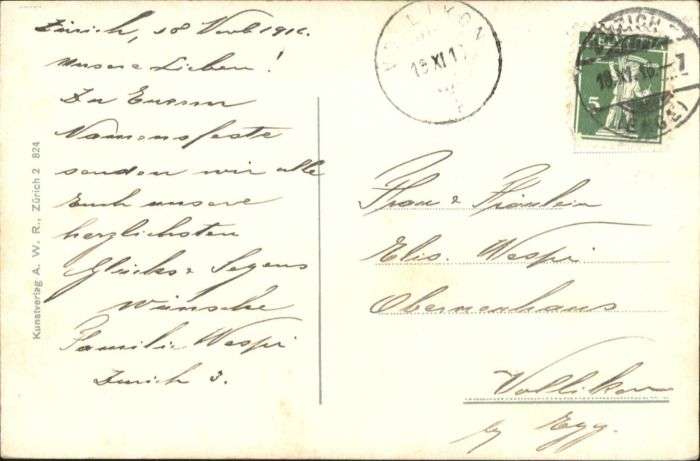 Zürich, 18 Novb 1916.
Unsere Lieben!
Zu Eurem
Namensfeste
senden wir alle
Euch unsere
herzlichsten
Glücks & Segens
wünsche
Familie Wespi
Zürich 3.
Kunstverlag A. W. R., Zürich 2 824
ZÜRICH
5
Frau & Fräulein
Elis. Wespi
Vollikon
by Egg.